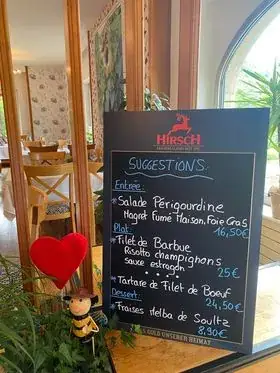 HIRSCH
SUGGESTIONS:
Entrée:
* Salade Périgourdine
Magret Fumé Maison, Foie Gras
16,50€
Plat:
* Filet de Barbue
Risotto champignons
Sauce estragon
25€
* Tartare de Filet de Boeuf
24,50€
Dessert:
* Fraises Melba de Soultz
8,90€
GOLD UNSERER HEIMAT